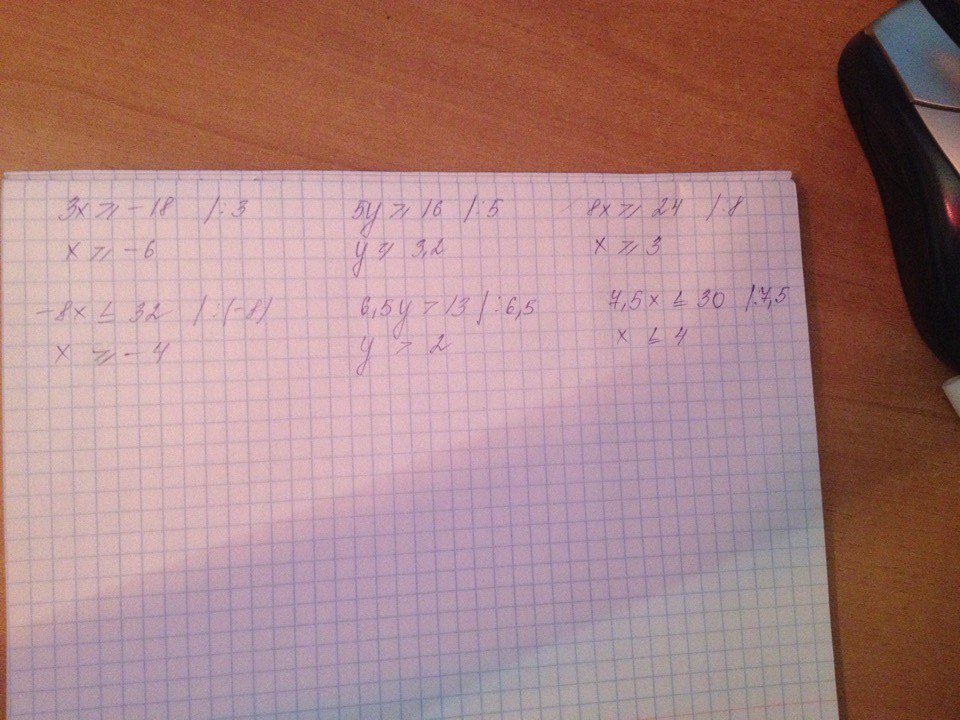 3x ⩾ -18 /:3
x ⩾ -6
5y ⩾ 16 /:5
y ⩾ 3,2
8x ⩾ 24 /:8
x ⩾ 3
-8x ≤ 32 /:(-8)
x ⩾ -4
6,5y > 13 /:6,5
y > 2
7,5x ≤ 30 /:7,5
x ≤ 4